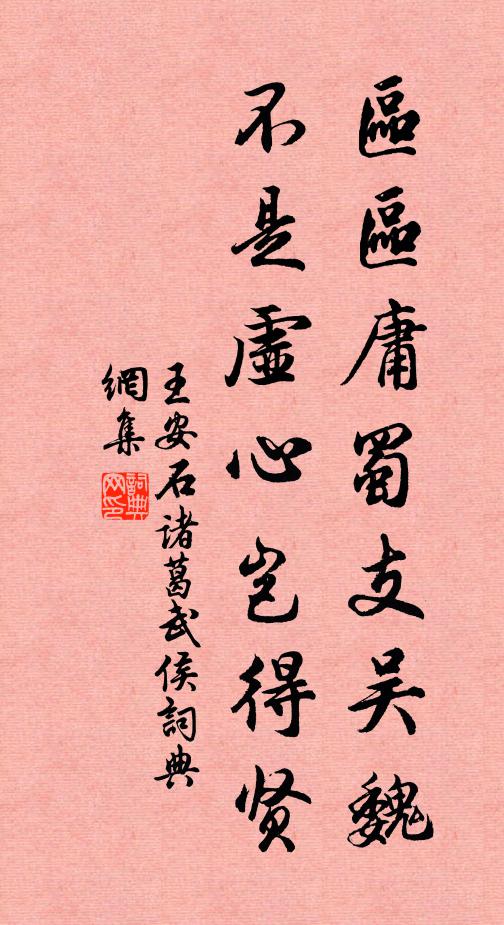 區區庸蜀支吴魏
不是虛心岂得贤
王安石諸葛武侯詞典
網集
詞典
网印